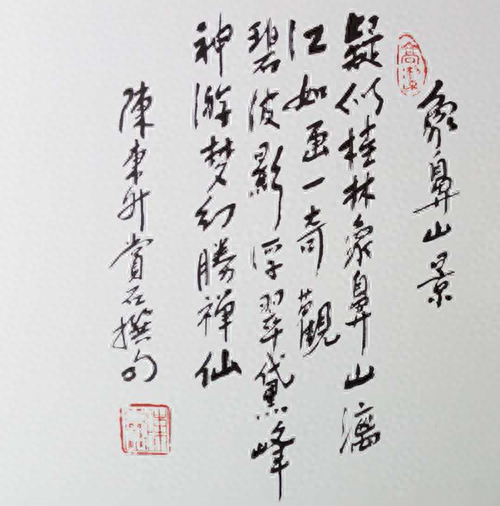 象鼻山景
疑似桂林象鼻山漓
江如画一奇觀
碧波影浮翠黛峰
神游梦幻勝禪仙
陳東升賞石撰句